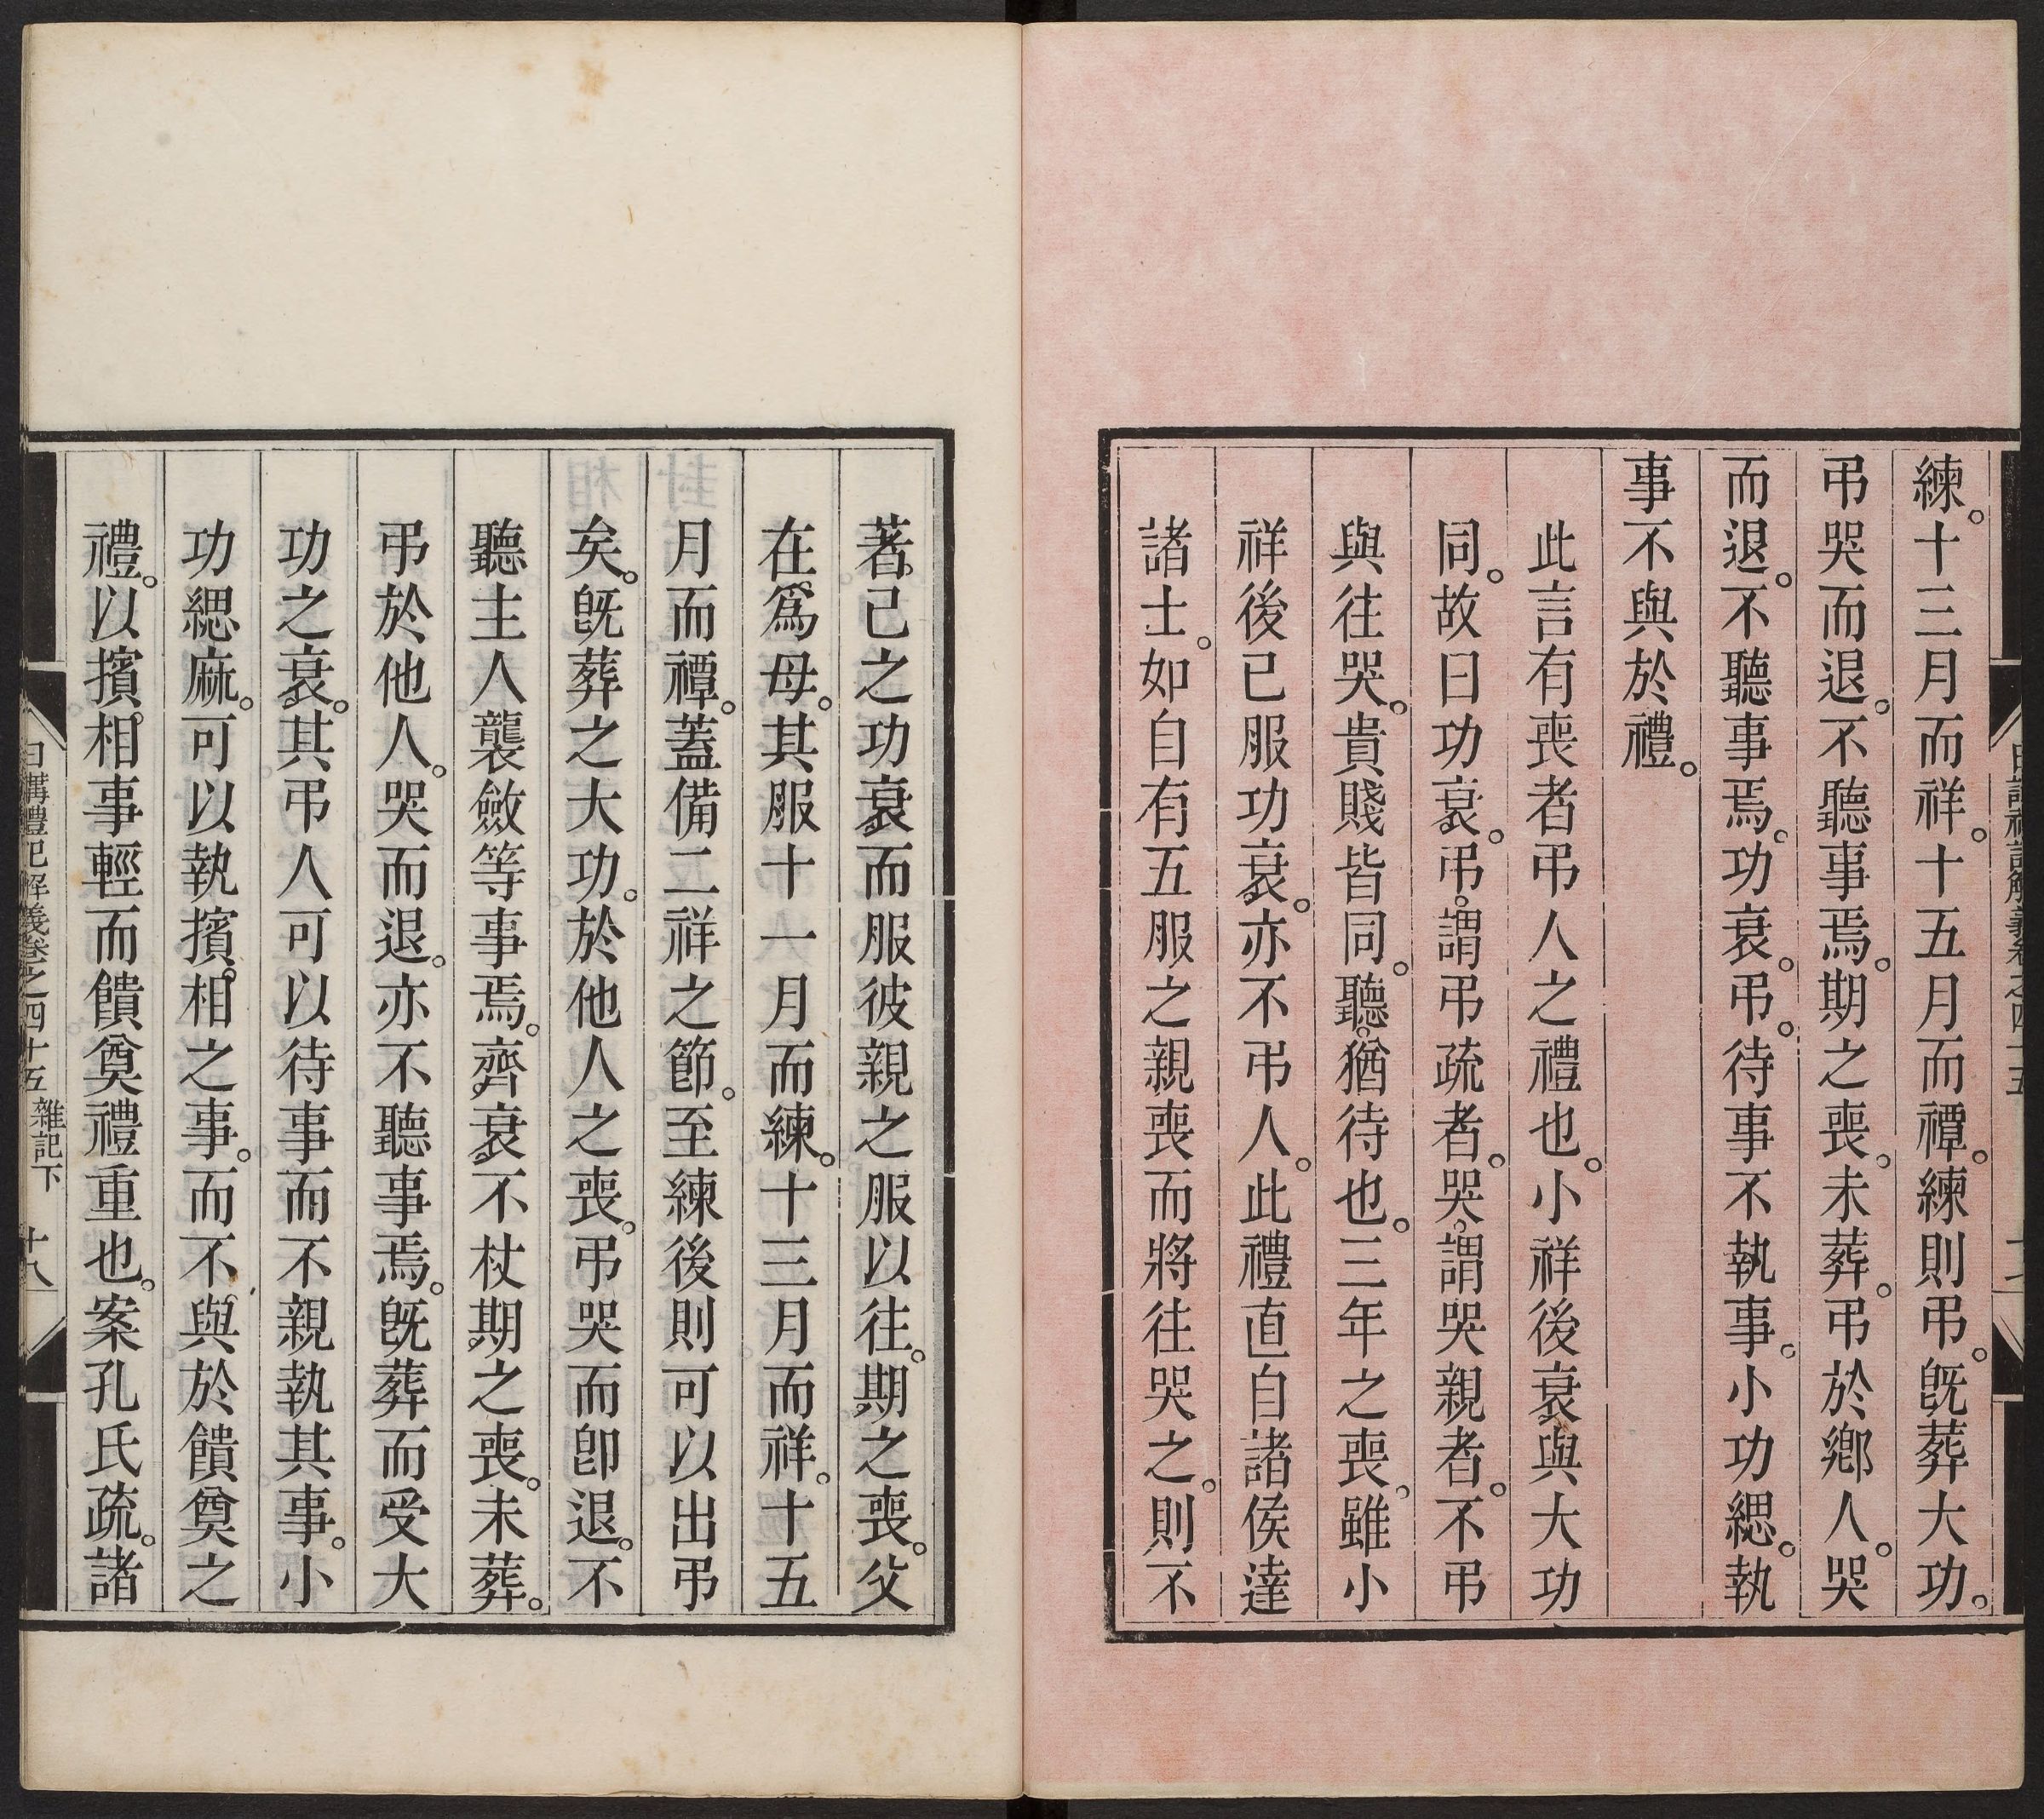 練。十三月而祥。十五月而禫。練則弔。旣葬大功。
弔哭而退。不聽事焉。期之喪。未葬。弔於鄉人。哭
而退。不聽事焉。功衰。弔。待事不執事。小功緦。執
事不與於禮。
此言有喪者弔人之禮也。小祥後衰與大功
同。故曰功衰。弔。謂弔疏者。哭。謂哭親者。不弔
與往哭。貴賤皆同。聽。猶待也。三年之喪。雖小
祥後已服功衰。亦不弔人。此禮直自諸侯達
諸士。如自有五服之親喪而將往哭之。則不
著。己之功衰而服彼親之服以往。期之喪。父
在。爲母。其服十一月而練。十三月而祥。十五
月而禫。蓋備二祥之節。至練後則可以出弔
矣。旣葬之大功。於他人之喪。弔哭而卽退。不
聽主人襲斂等事焉。齊衰不杖期之喪。未葬。
弔於他人。哭而退。亦不聽事焉。旣葬而受大
功之衰。其弔人可以待事而不親執其事。小
功緦麻。可以執擯。相之事。而不。與於饋奠之
禮。以擯。相事輕而饋奠禮重也。案孔氏疏。諸
日講禮記解義卷之四十五 雜記下 十八